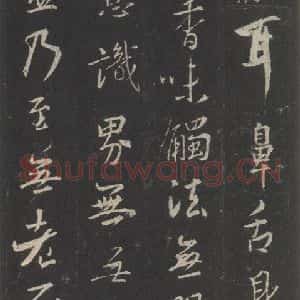 耳鼻舌身
香味觸法無
意識界無无
乃至無老
Shufawang.CN